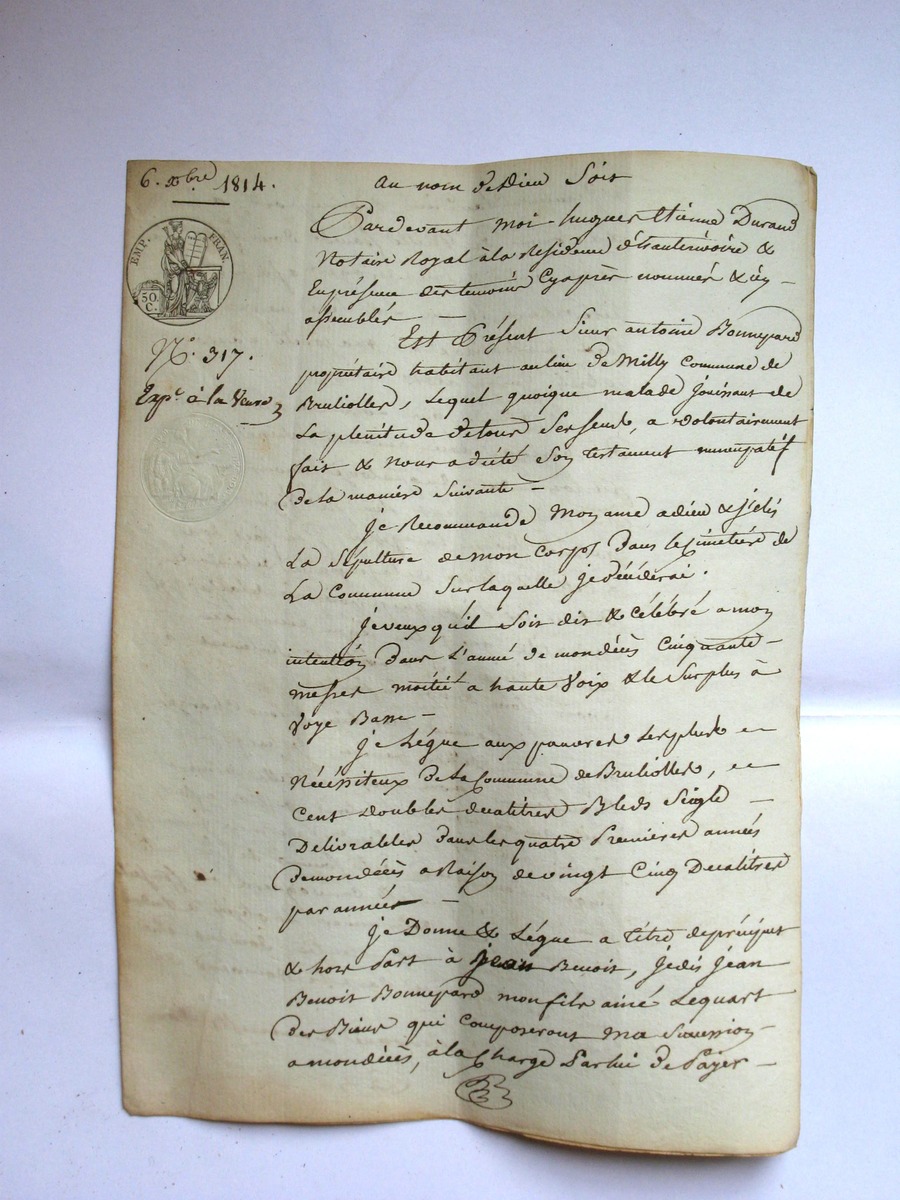 6. xbre 1814.
EMP. FRAN
50. C.
N.º 317.
Expé à la Veuve
au nom de Dieu Soit
Pardevant moi hugues Etienne Durand
Notaire Royal à la Residence de &
En présence des temoins Cyaprès nommés &
assemblés —
Est Présent Sieur antoine Bonnepard
propriétaire habitant au lieu de Milly Commune de
Brulliolles, Lequel quoique malade Jouissant de
La plenitude de tous Ses Sens, a volontairement
fait & nous a dicté Son testament nuncupatif
de la maniere Suivante —
Je Recommande Mon ame a dieu & j'elis
La Sepulture de mon Corps dans le Cimetiere de
La Commune Sur laquelle je déciderai.
Je veux qu'il Soit dit & célébré a mon
intention dans L'année de mon décès Cinquante —
messes moitié a haute Voix & le Surplus à
Voye Basse —
Je Légue aux pauvres les plus —
Nécéssiteux de la Commune de Brulliolles,
Cent doubles decalitres Bleds Seigle —
Delivrables dans les quatre Premieres années
de mon décès a Raison de vingt Cinq Decalitres
par année —
Je Donne & Légue a titre de préciput
& hors Part à jean Benoit, Je dis Jéan
Benoit Bonnepard mon fils ainé Le quart
des Biens qui Composeront ma Succession —
a mon décès, à la Charge Par lui de Payer —